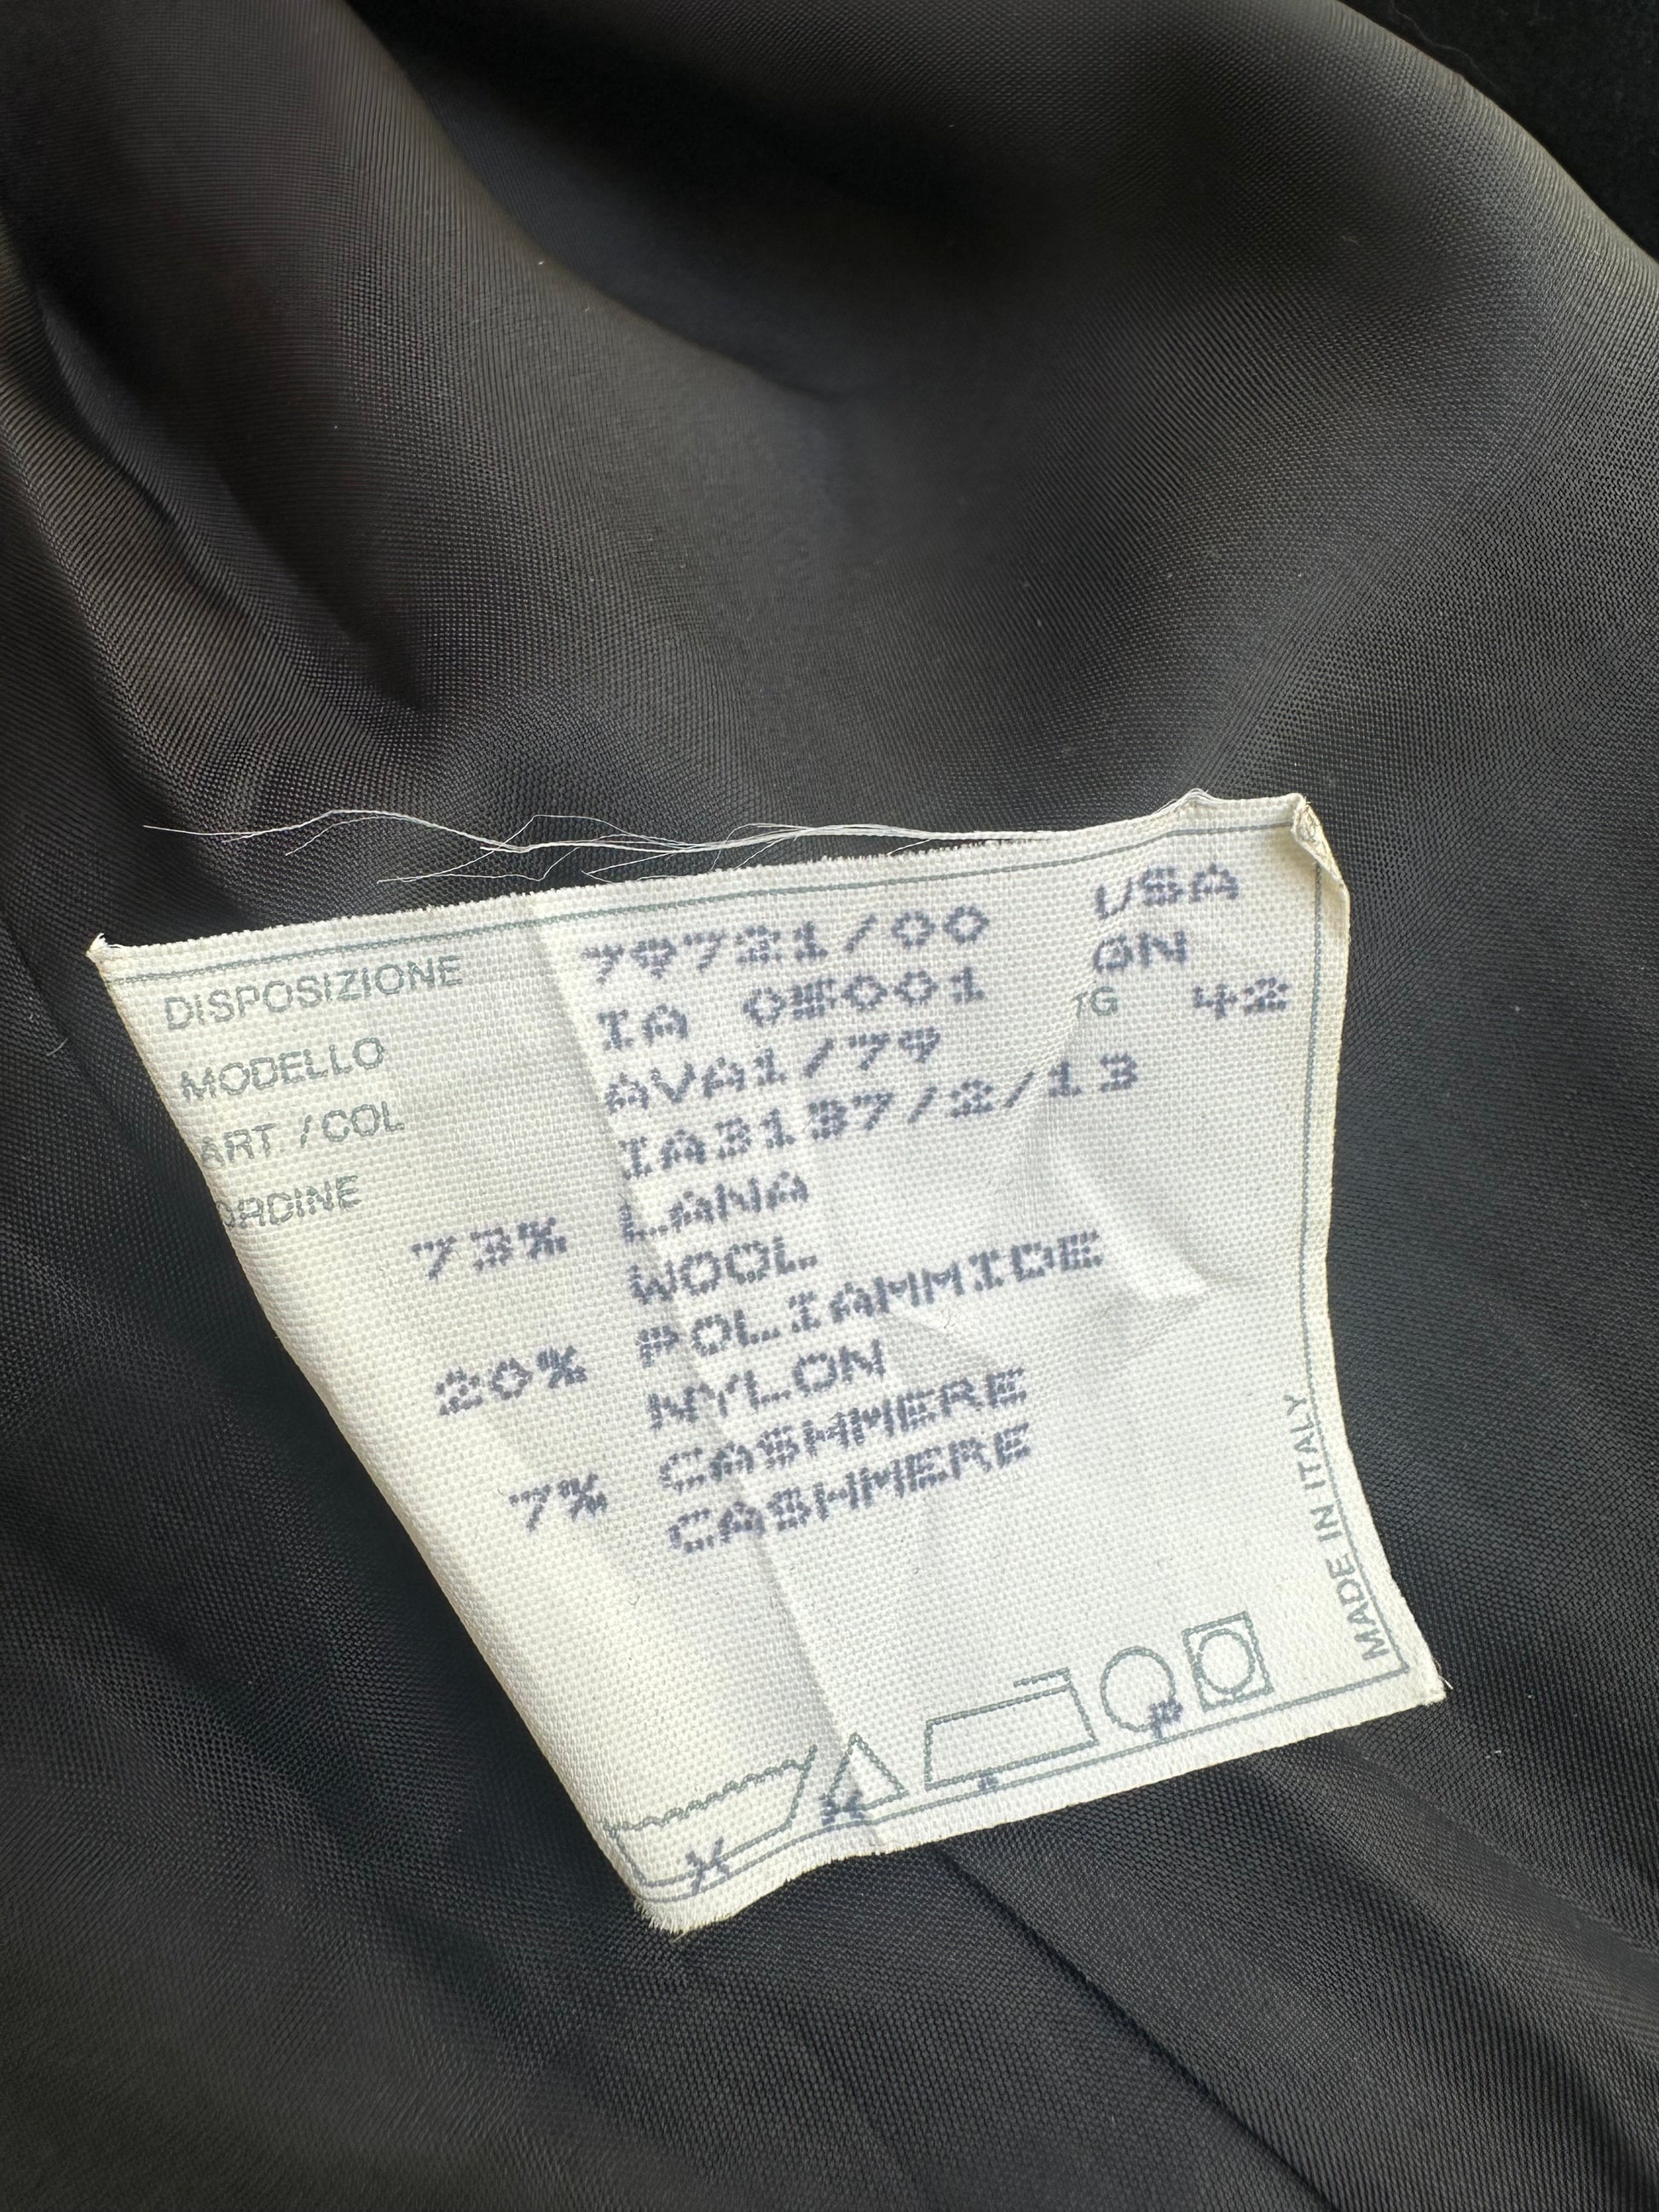 DISPOSIZIONE 79721/00 USA
MODELLO IA 05001 GN
ART. /COL AVA1/79 TG 42
ORDINE IA3137/2/13
73% LANA
WOOL
20% POLIAMMIDE
NYLON
7% CASHMERE
CASHMERE
P
MADE IN ITALY